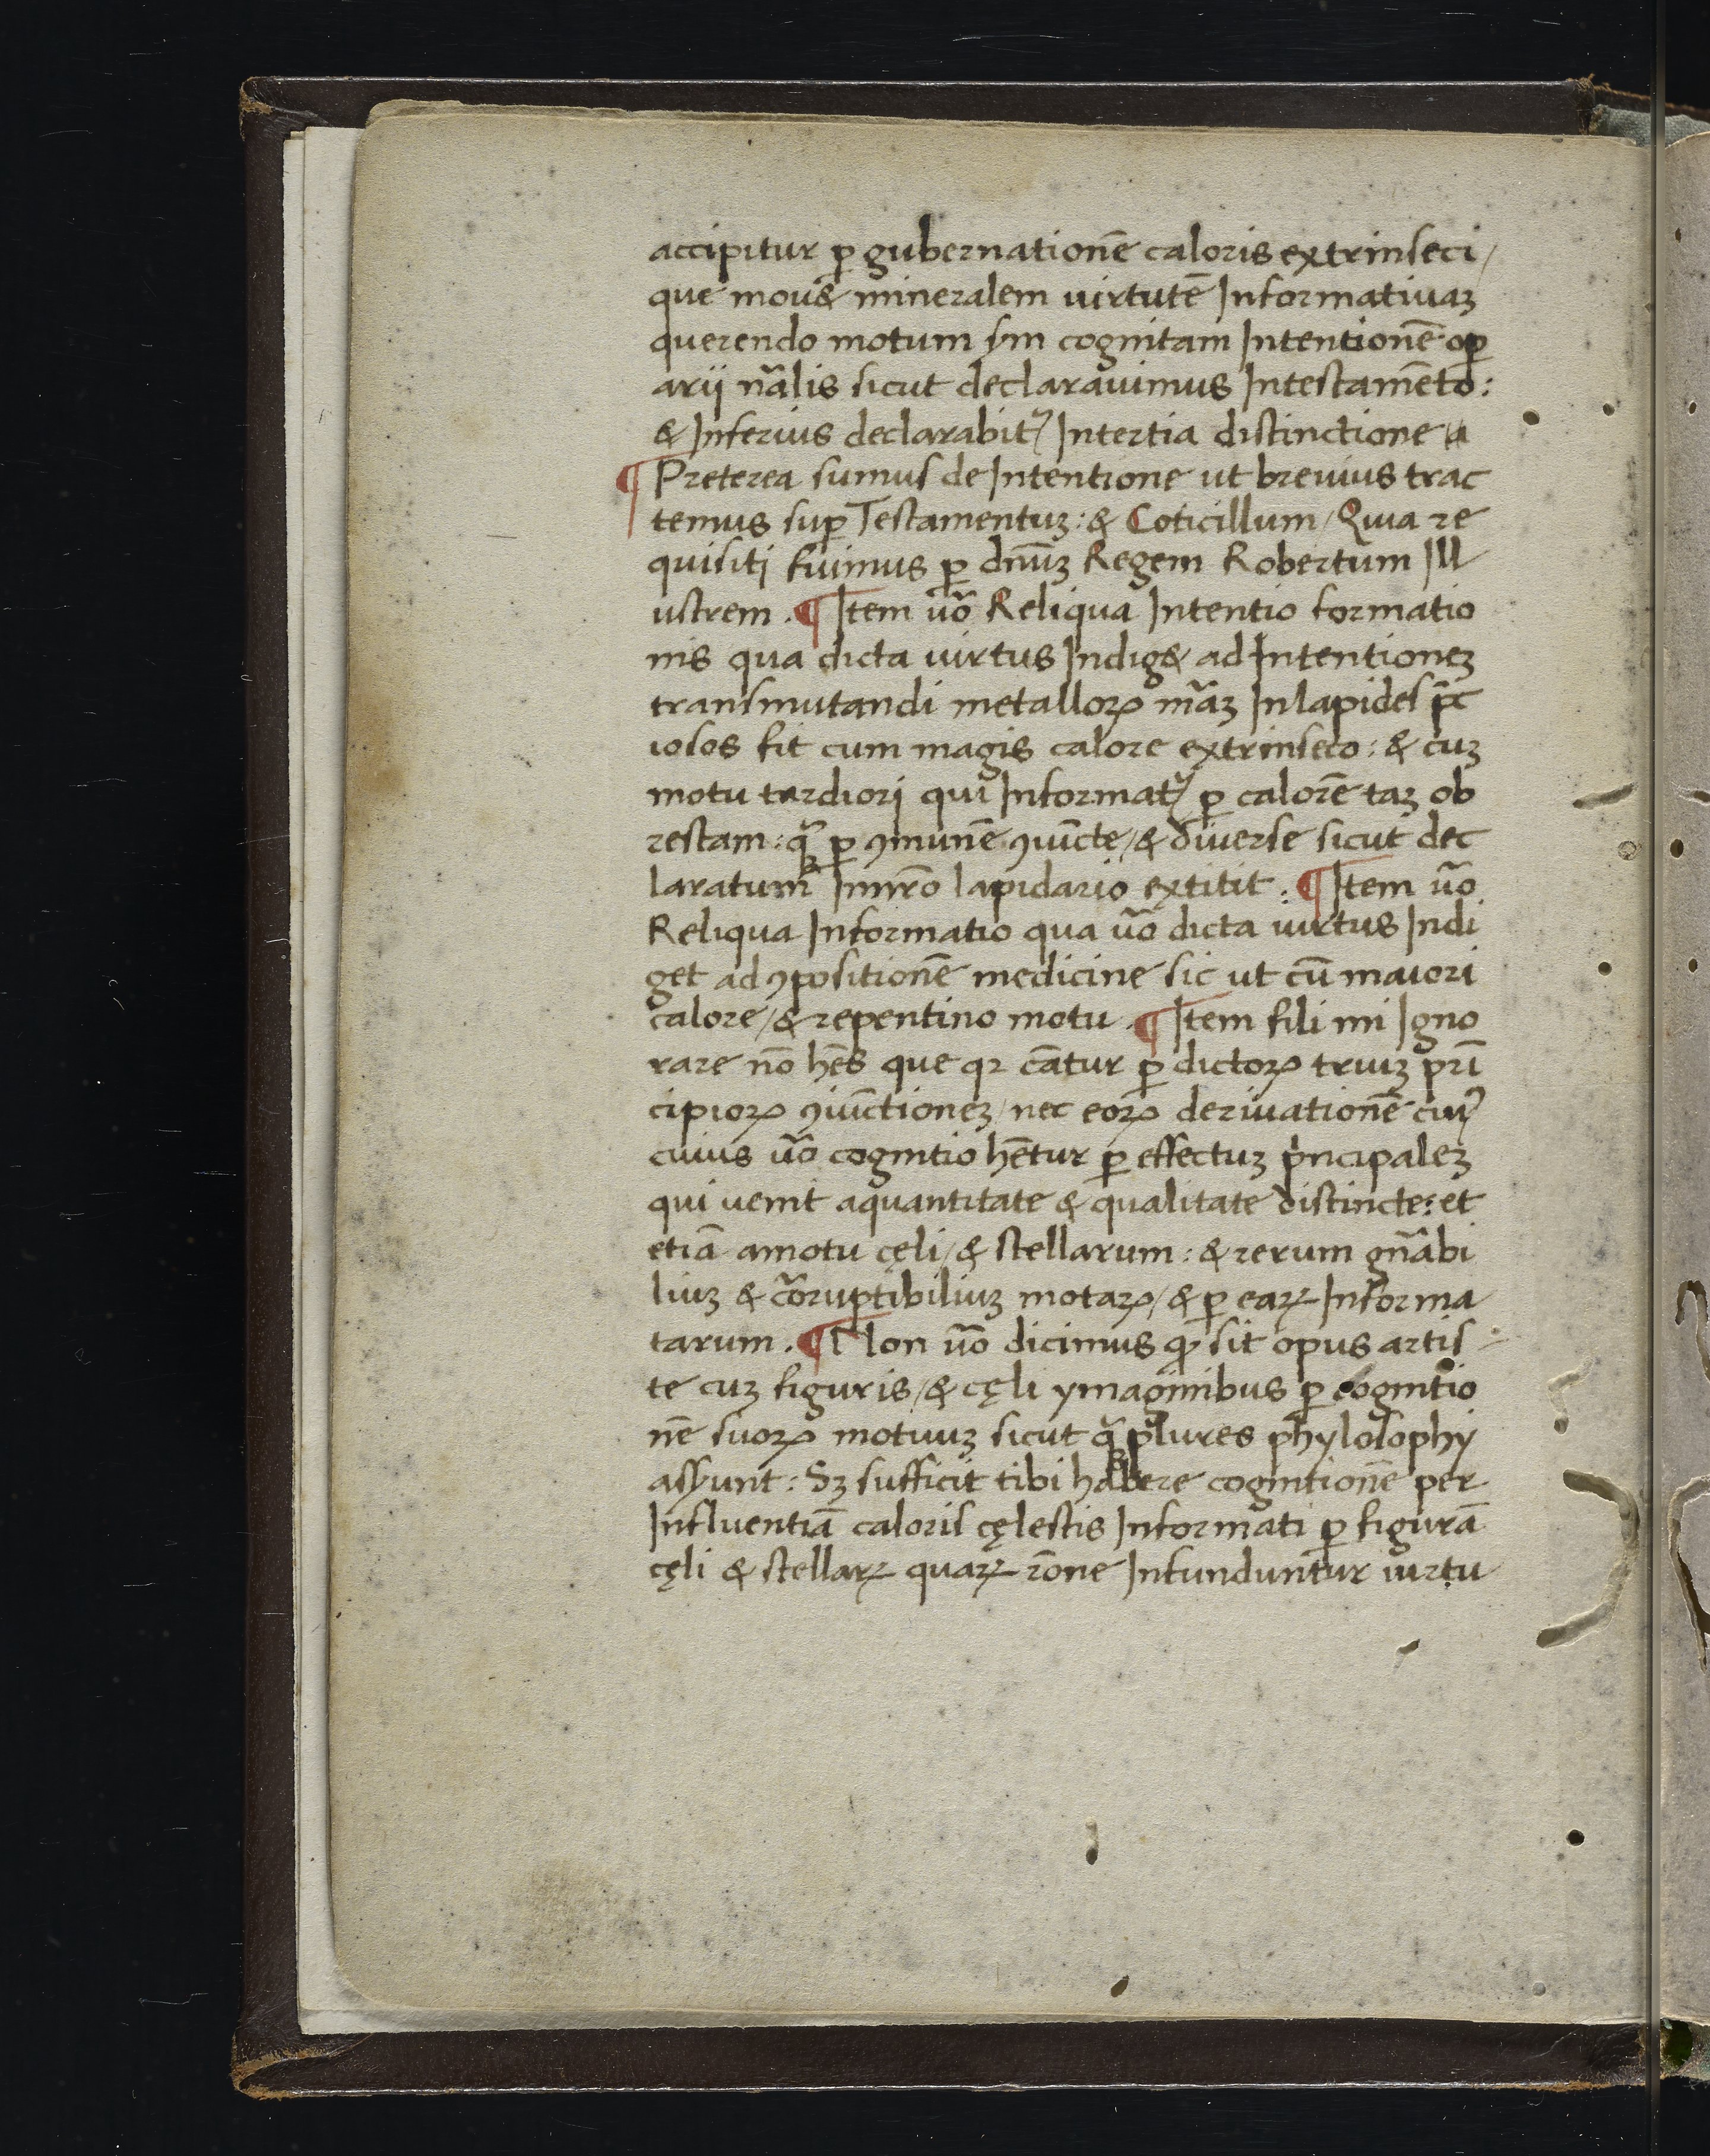 accipitur ꝑ gubernationẽ caloris extrinseci /
que mou& mineralem uirtutẽ Informatiuaꝫ
querendo motum ẜm cognitam Intentionẽ oꝑ
arij nãlis sicut declarauimus Intestamẽto:
& Inferius declarabit᷑ Intertia distinctione
¶ Preterea sumus de Intentione ut breuius trac
temus suꝑ Testamentuꝫ: & Coticillum / Quia re
quisiti fuimus ꝑ dnũꝫ Regem Robertum Ill
ustrem. ¶ Item uõ Reliqua Intentio formatio
nis qua dicta uirtus Indig& ad Intentioneꝫ
transmutandi metalloꝝ mãꝫ Inlapides p̃c
iosos fit cum magis calore extrinseco: & cuꝫ
motu tardiori qui Informat᷑ ꝑ calorẽ taꝫ ob
restam: ꝙ̃ ꝑ ꝯmunẽ ꝯiũcte / & diuerse sicut dec
laratum Innr̃o lapidario extitit: ¶ Item uõ
Reliqua Informatio qua uõ dicta uirtus Indi
get ad ꝯpositionẽ medicine sic ut cũ maiori
calore / & repentino motu. ¶ Item fili mi Igno
rare nõ hẽs que qꝛ cãtur ꝑ dictoꝝ triuꝫ prĩ
cipioꝝ ꝯiũctioneꝫ / nec eoꝝ deriuationẽ cui᷒
cuius uõ cognitio hẽtur ꝑ effectuꝫ p̃ncipaleꝫ
qui uenit aquantitate & qualitate distincte: et
etiã amotu cęli / & stellarum: & rerum gñabi
liuꝫ & cõruptibiliuꝫ motaꝝ / & ꝑ eaꝝ Informa
tarum. ¶ Non uõ dicimus ꝙ sit opus artis
te cuꝫ figuris / & cęli ymaginibus ꝑ cognitio
nẽ suoꝝ motiuuꝫ sicut ꝙ̃ plures phylosophy
assunt: Sꝫ sufficit tibi habere cognitionẽ per
Influentiã caloris cęlestis Informati ꝑ figurã
cęli & stellaꝝ quaꝝ rõne Infunduntur uirtu